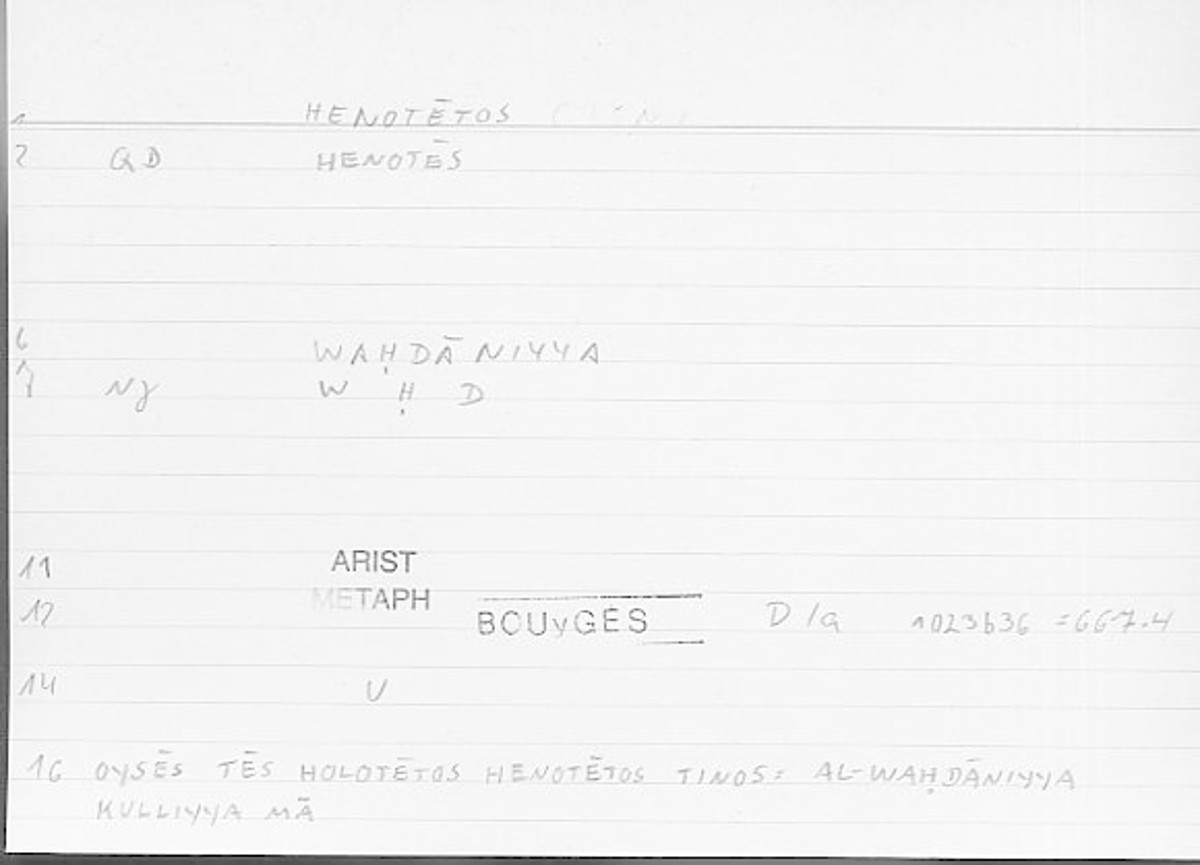 1 HENOTĒTOS
2 QD HENOTĒS
6 WAḤDĀNIYYA
7 NJ W Ḥ D
11 ARIST
12 METAPH BOUyGES D/a 1023b36 =667.4
14 U
16 OYSĒS TĒS HOLOTĒTOS HENOTĒTOS TINOS= AL-WAḤDĀNIYYA
KULLIYYA MĀ